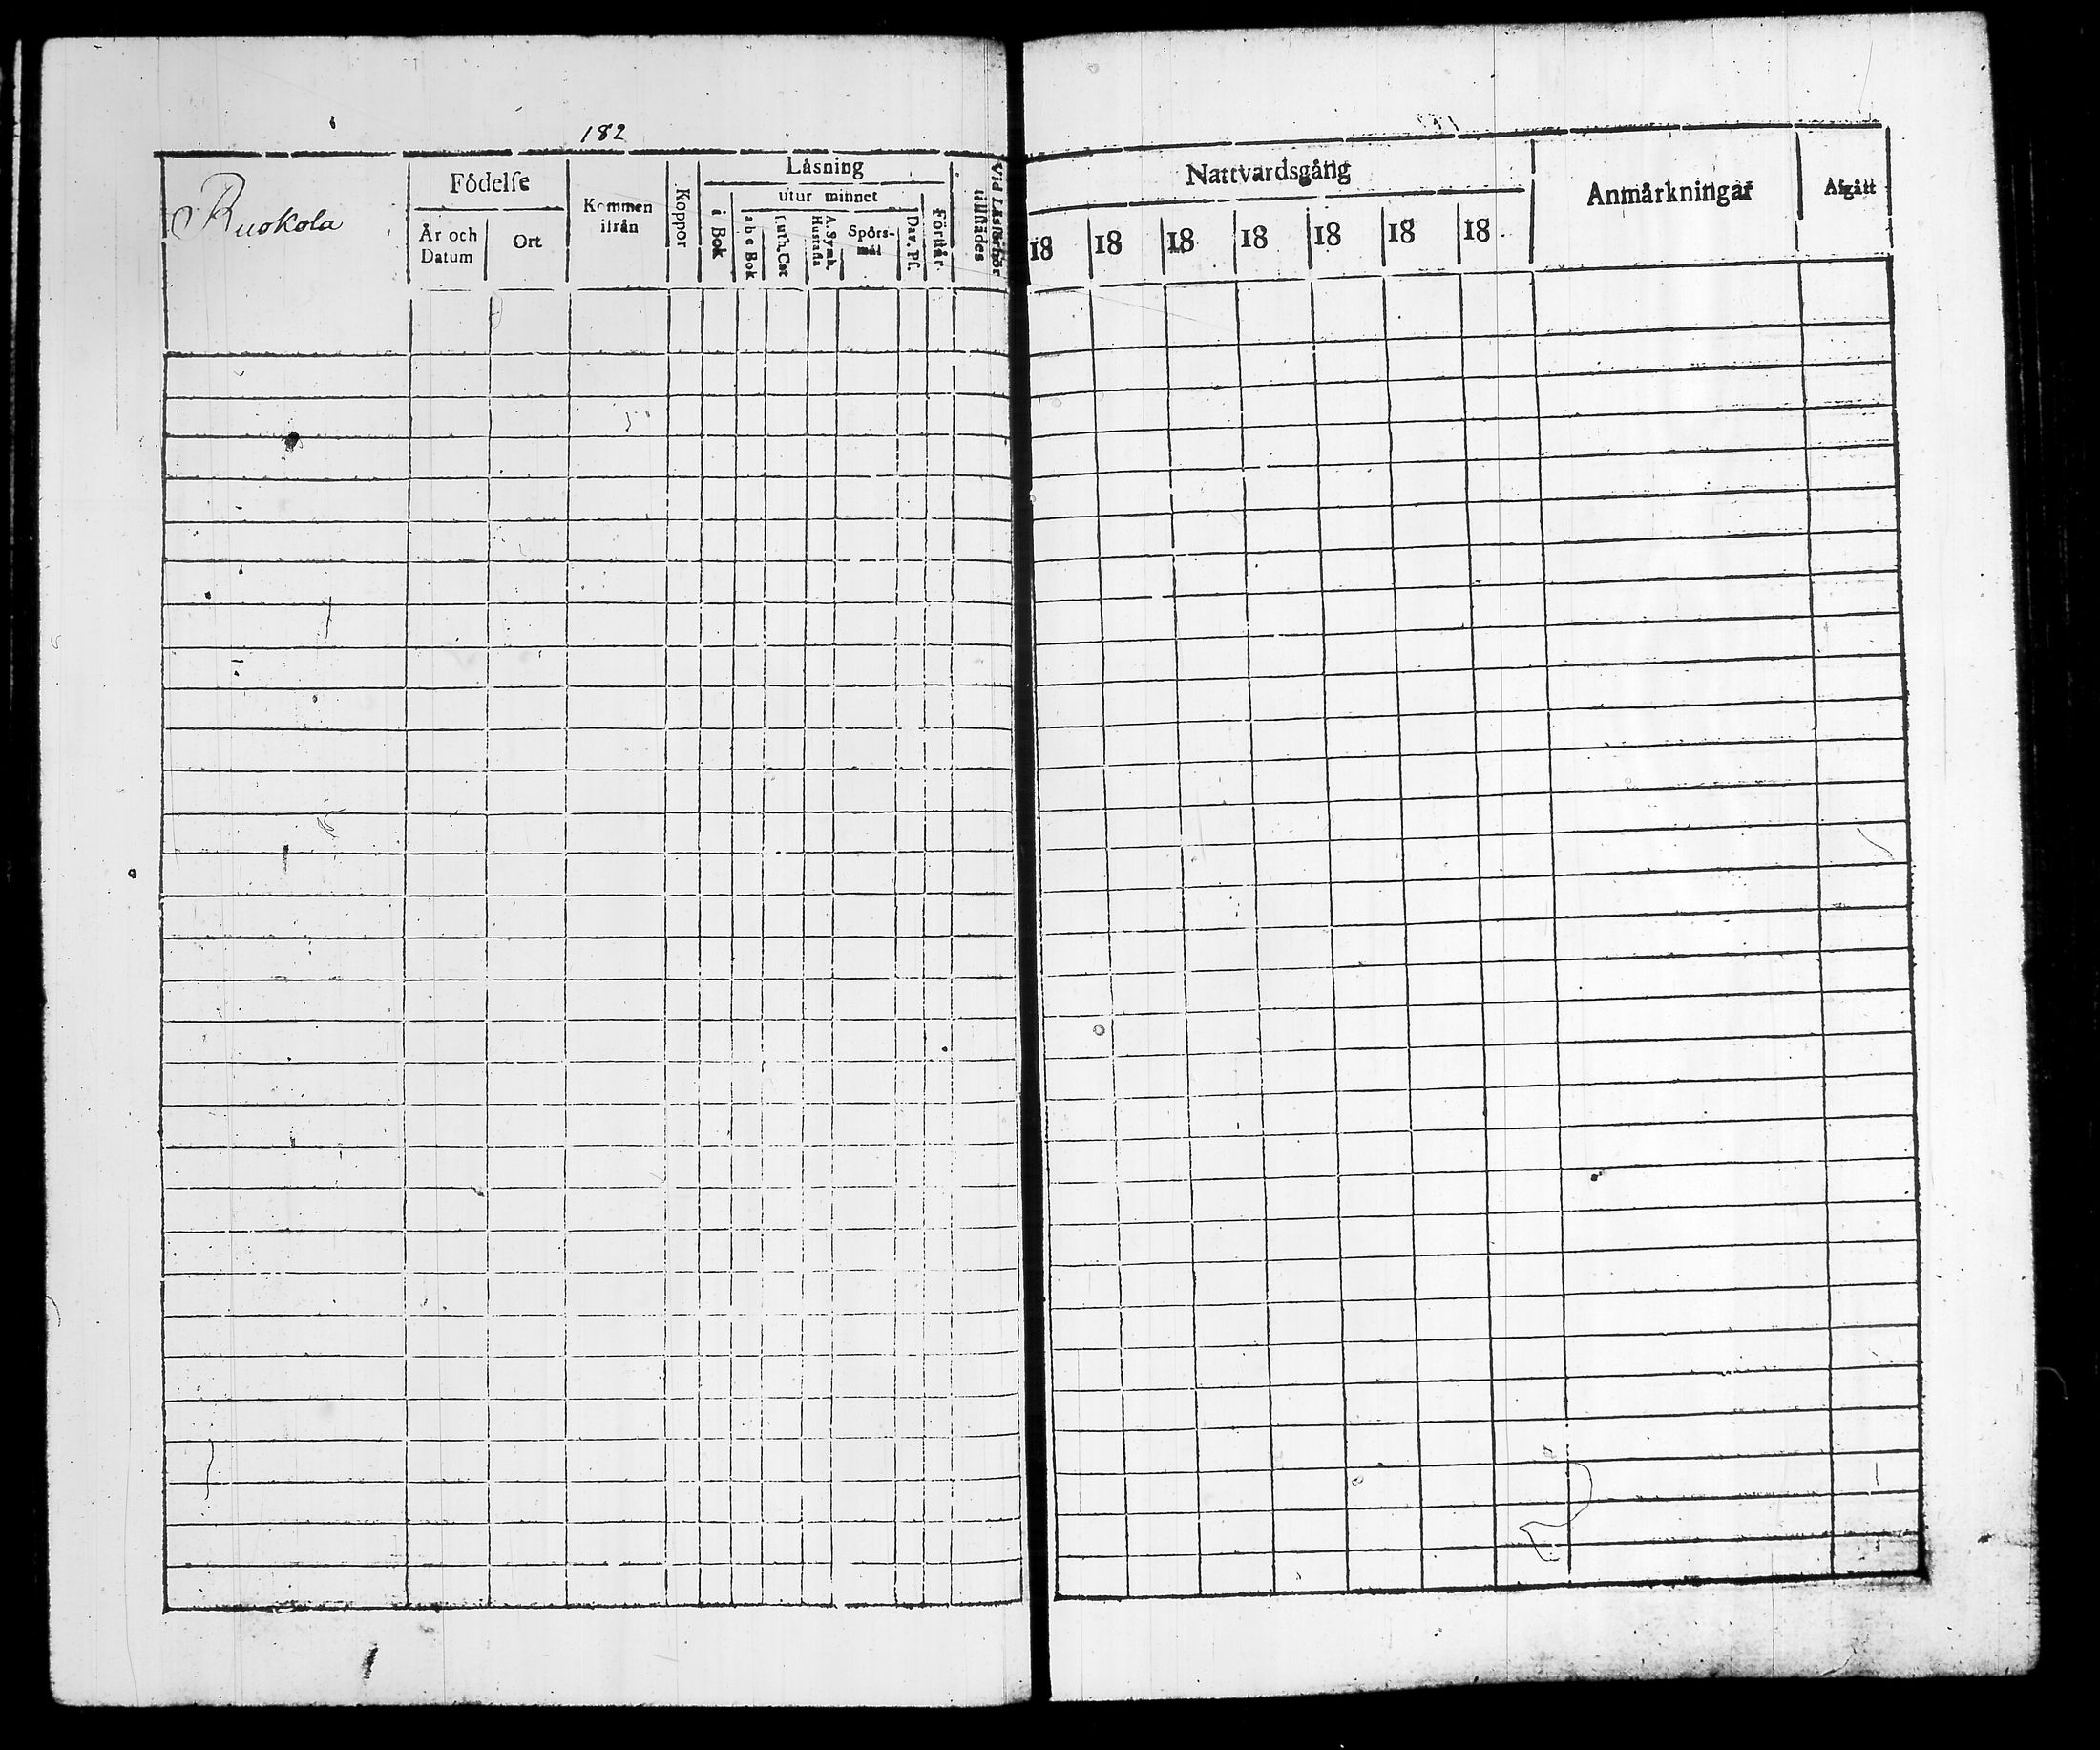 182
Ruokola
Födelse
År och Datum
Ort
Kommen ifrån
Koppor
Läsning
i Bok
utur minnet
a b c Bok
Luth. Cat
A. Symb. Hustafla
Spörs-mål
Dav. Ps.
Förstår
Vid Läsförhör tillstädes
Nattvardsgång
18 18 18 18 18 18 18
Anmärkningar
Afgått